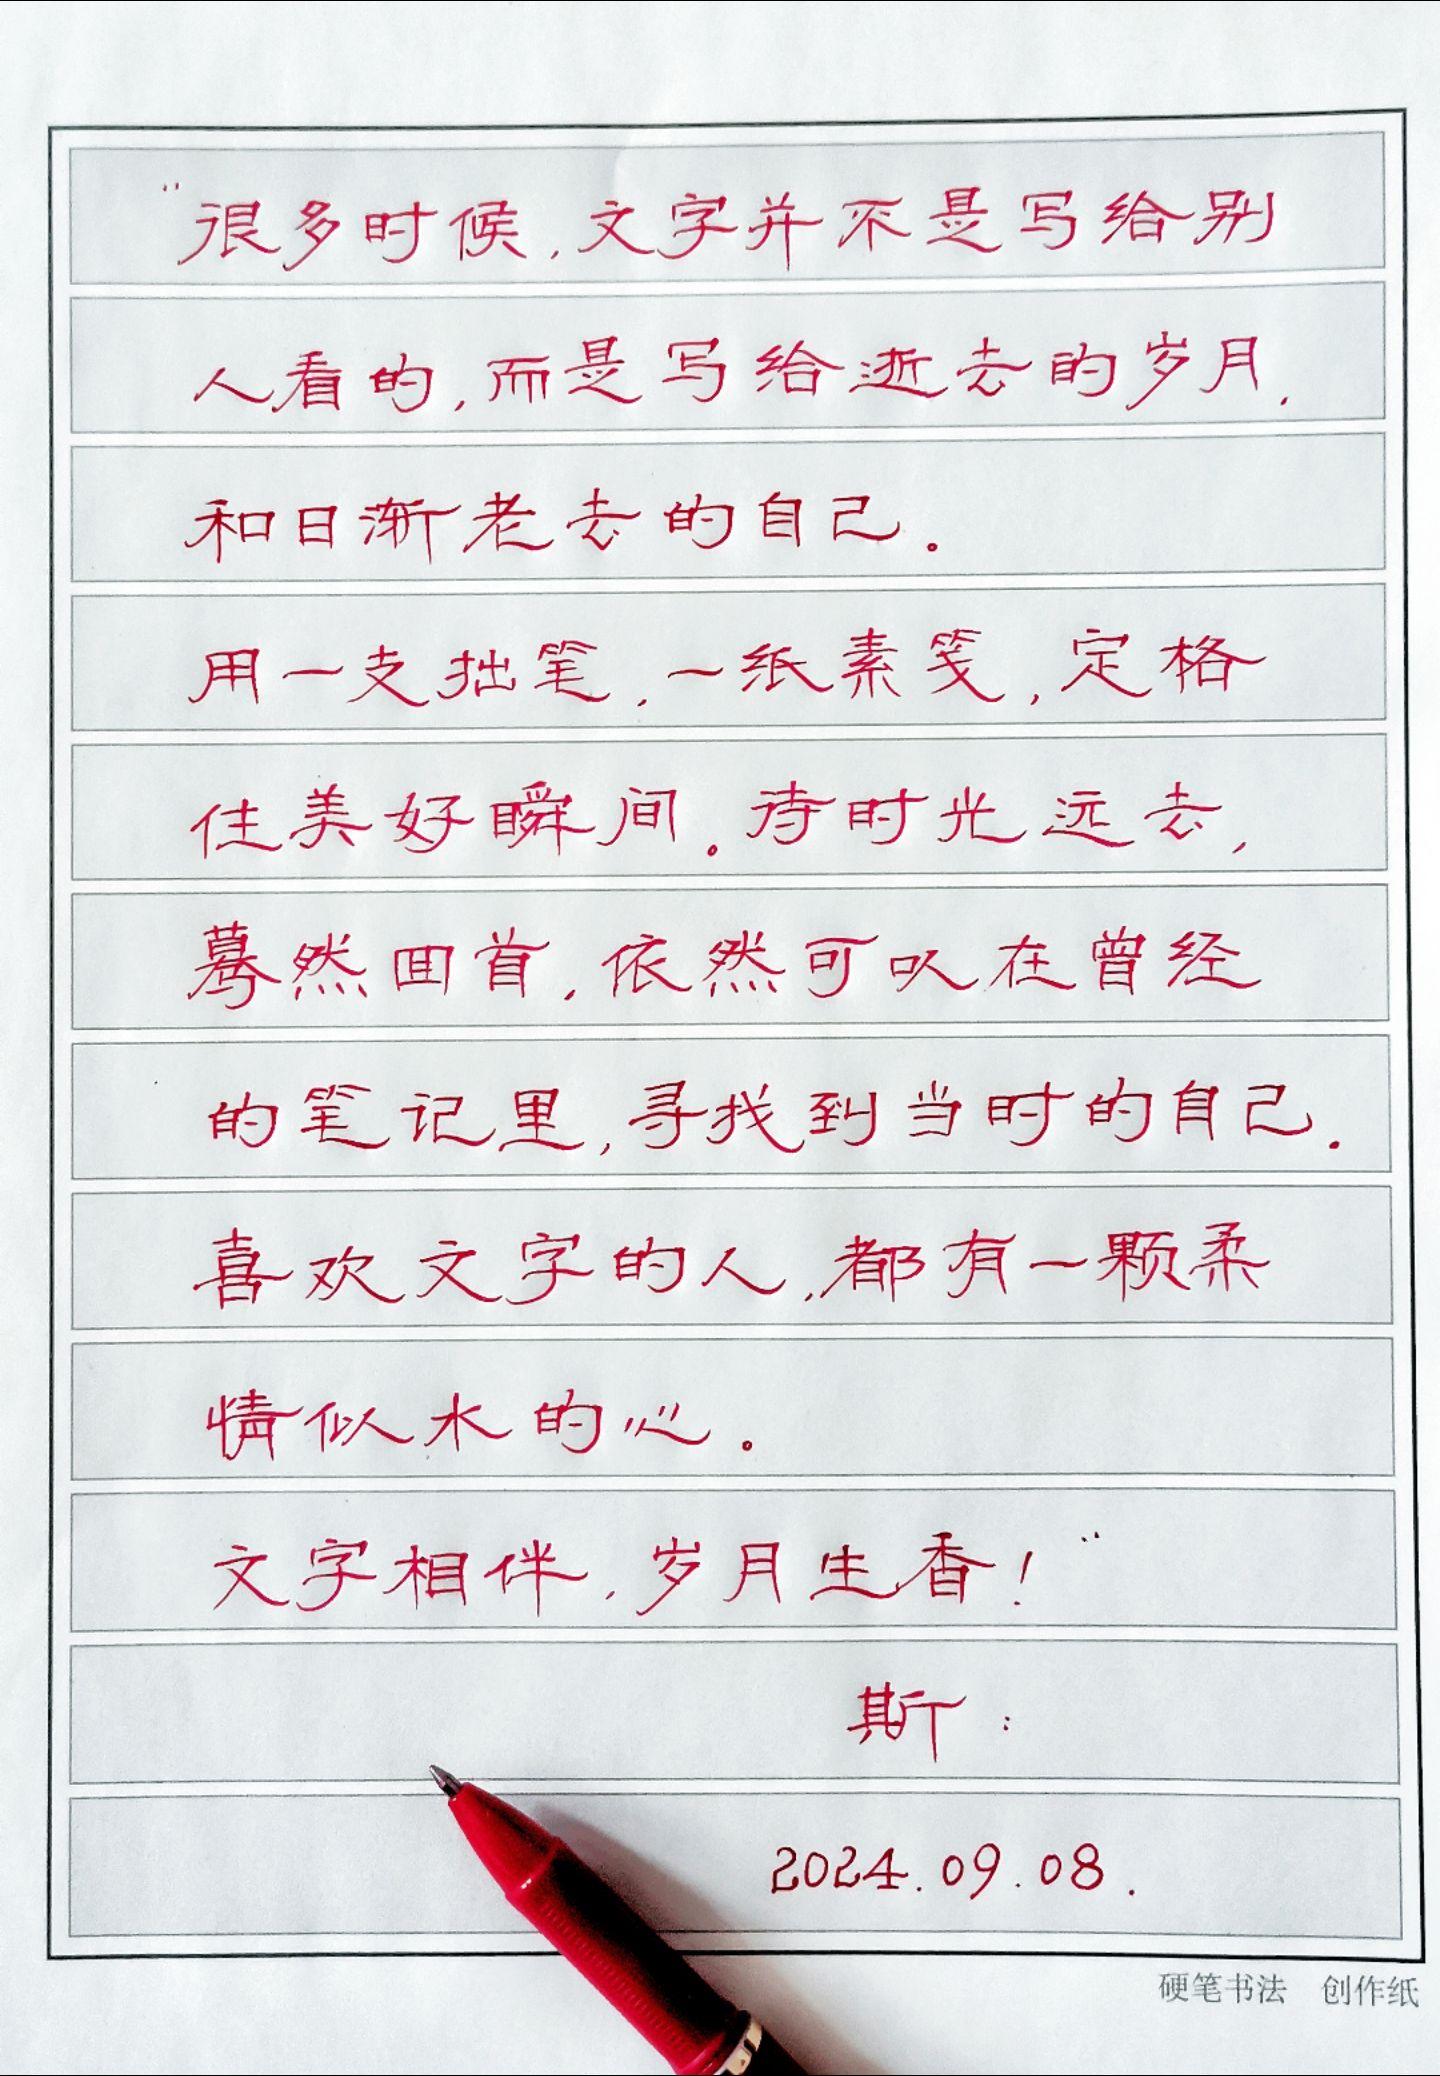 “很多时候,文字并不是写给别
人看的,而是写给逝去的岁月,
和日渐老去的自己。
用一支拙笔,一纸素笺,定格
住美好瞬间。待时光远去,
蓦然回首,依然可以在曾经
的笔记里,寻找到当时的自己。
喜欢文字的人,都有一颗柔
情似水的心。
文字相伴,岁月生香!”
斯:
2024.09.08.
硬笔书法 创作纸